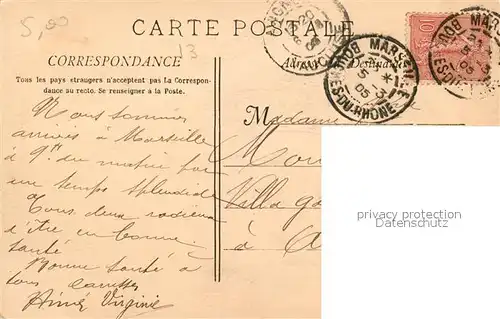 5,00
CARTE POSTALE
13
CORRESPONDANCE
Tous les pays étrangers n'acceptent pas la Correspon-
dance au recto. Se renseigner à la Poste.
Nous sommes
arrivés à Marseille
à 9h du matin par
un temps splendide
Tous deux radieux
d'être en bonne
santé
Bonne santé à
tous caresses
Aimé Virginie
Adresse Destinataire
MARSEILLE
BOUCHES-DU-RHONE
5 -3
05
10
Madame
Villa
à
privacy protection
Datenschutz